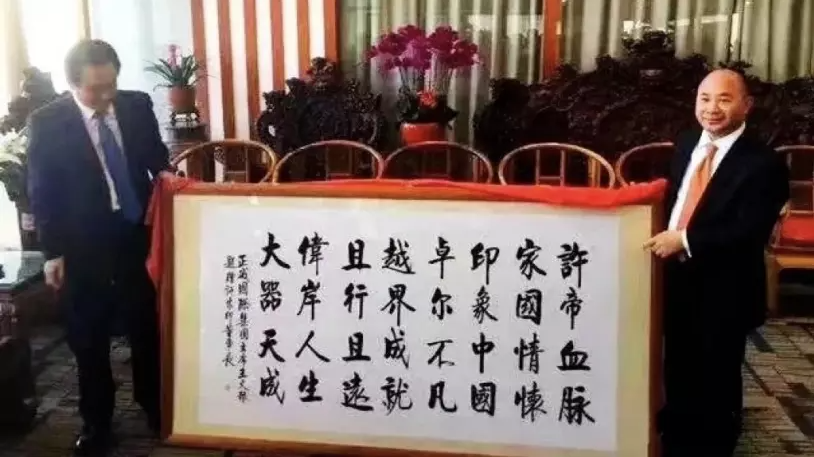 許帝血脈
家國情懷
印象中國
卓尔不凡
越界成就
且行且遠
偉岸人生
大器天成
正威國際集團主席王文銀
題贈许家印董事長